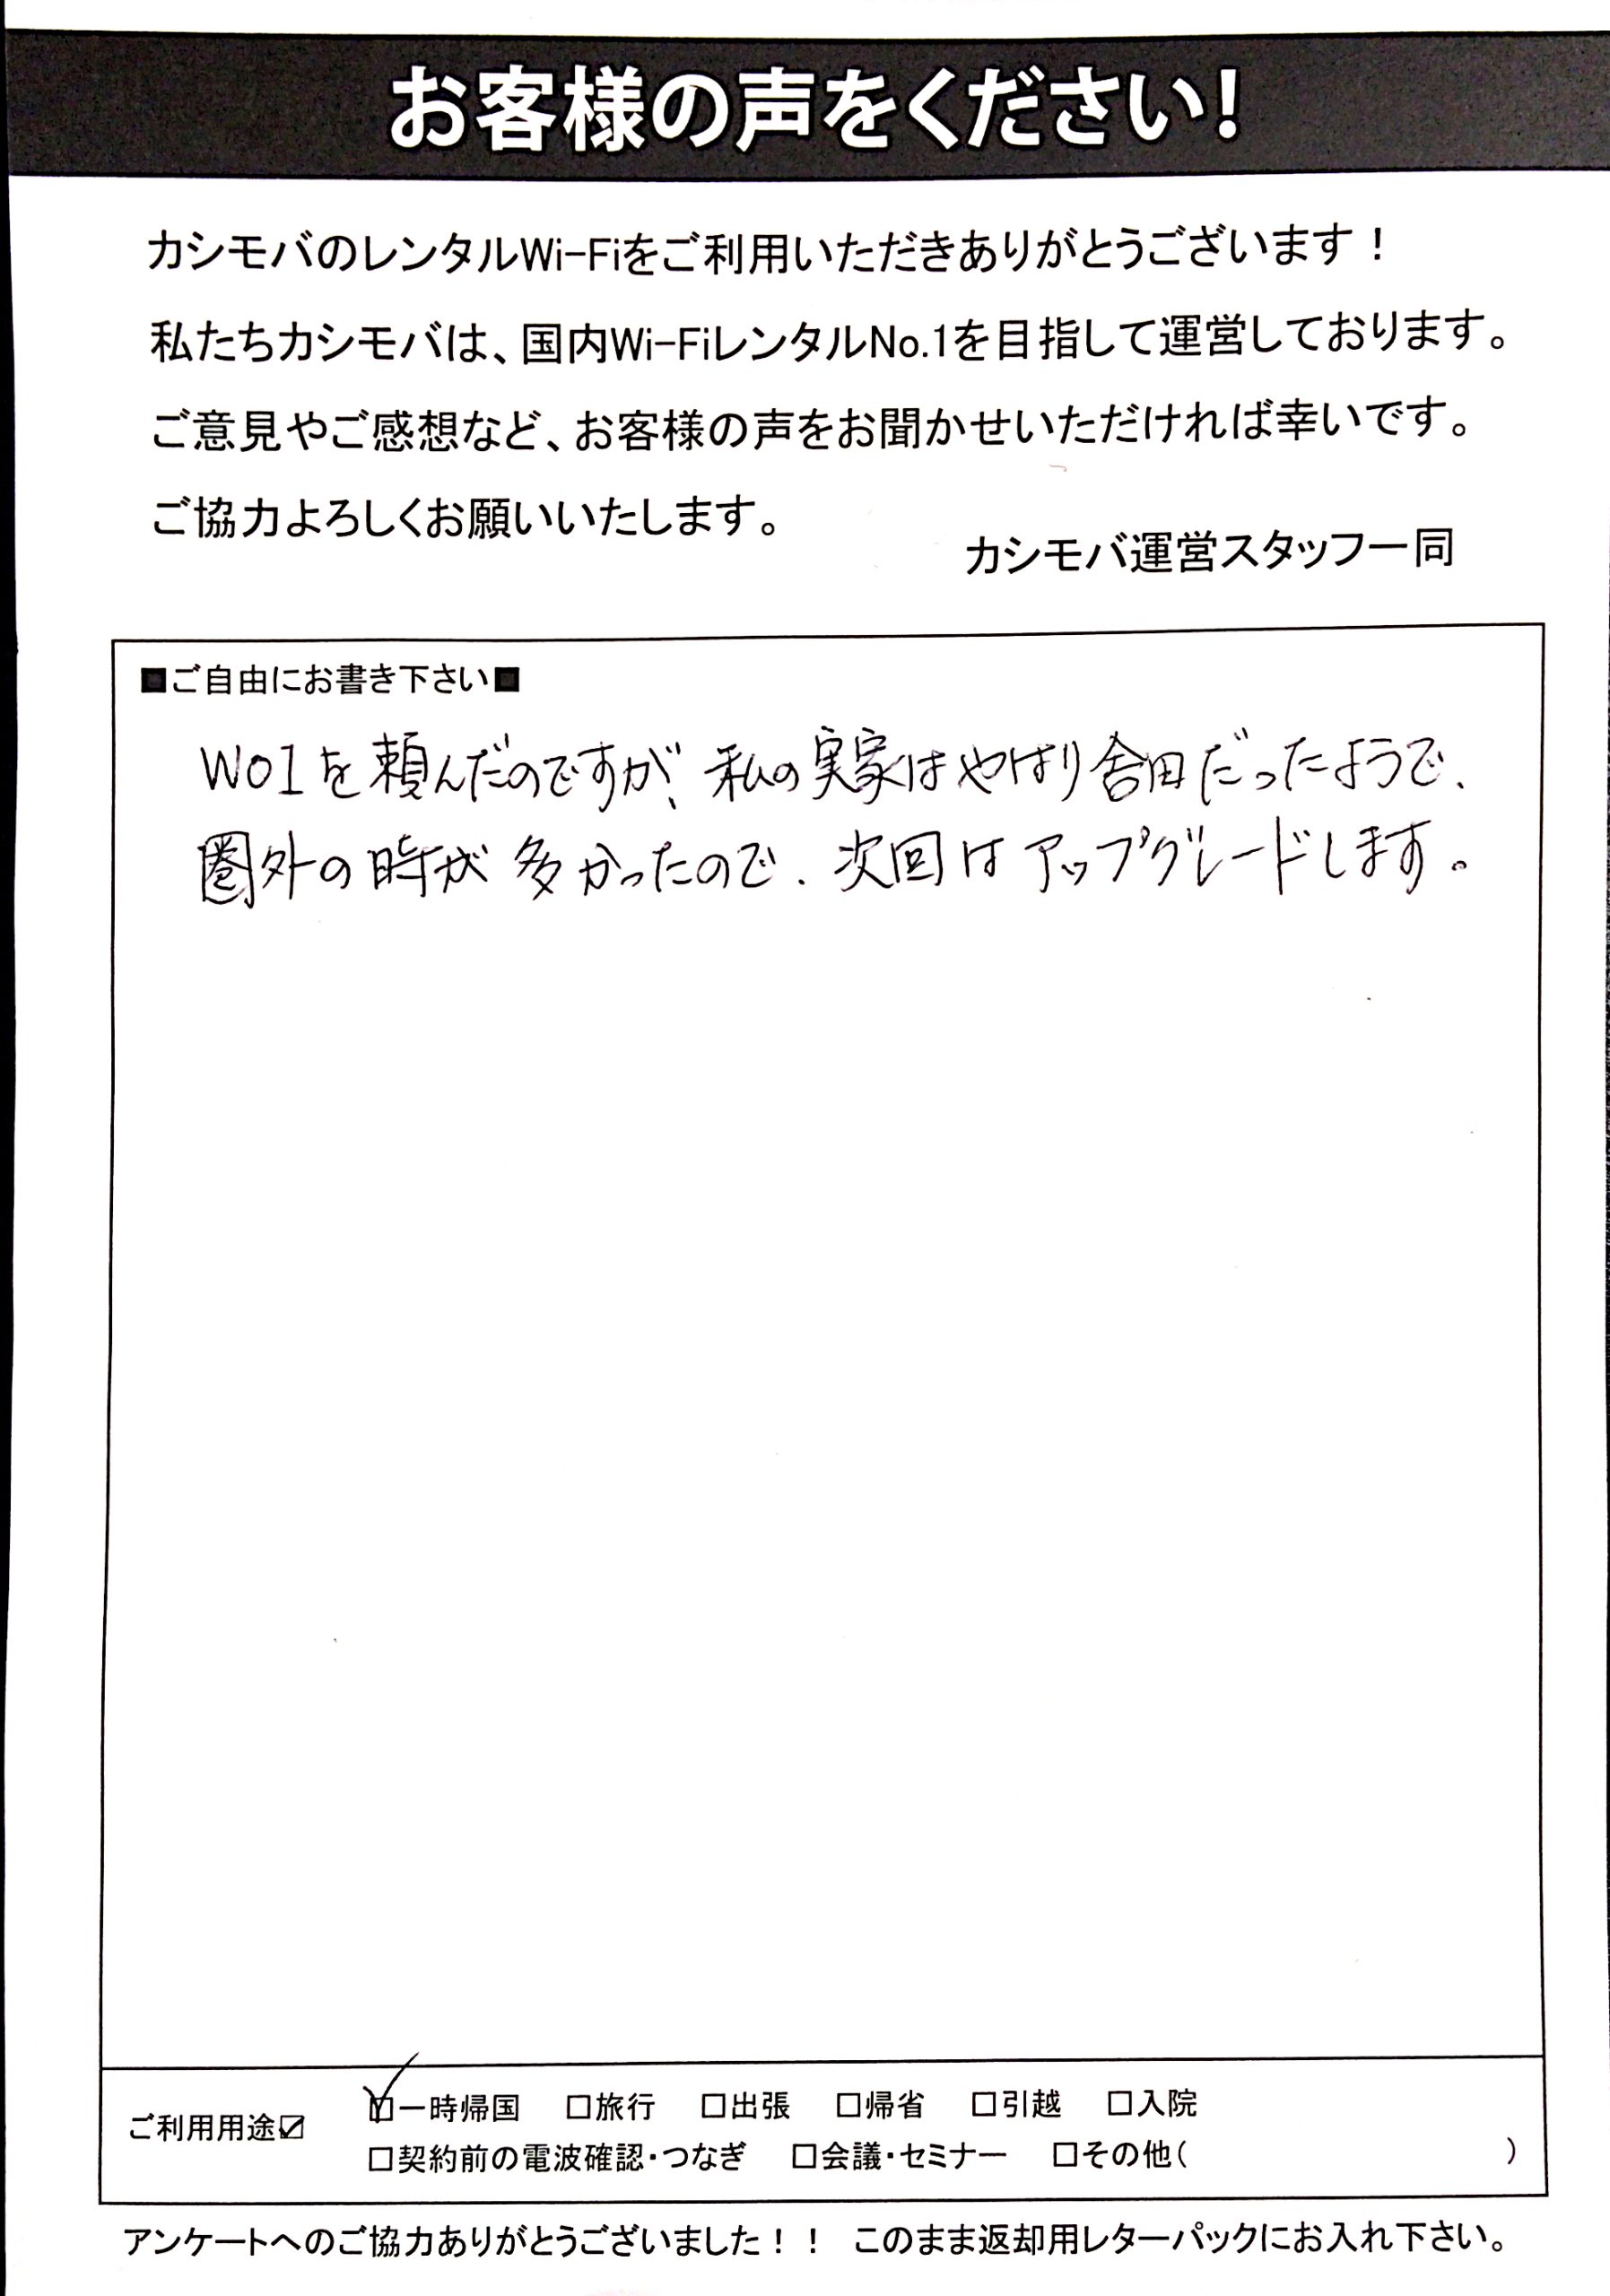 お客様の声をください!
カシモバのレンタルWi-Fiをご利用いただきありがとうございます！
私たちカシモバは、国内Wi-FiレンタルNo.1を目指して運営しております。
ご意見やご感想など、お客様の声をお聞かせいただければ幸いです。
ご協力よろしくお願いいたします。
カシモバ運営スタッフ一同
■ご自由にお書き下さい■
W01を頼んだのですが、私の実家はやはり舎田だったようで、
圏外の時が多かったので、次回はアップグレードします。
ご利用用途☑
☑一時帰国 □旅行 □出張 □帰省 □引越 □入院
□契約前の電波確認・つなぎ □会議・セミナー □その他( )
アンケートへのご協力ありがとうございました！！ このまま返却用レターパックにお入れ下さい。